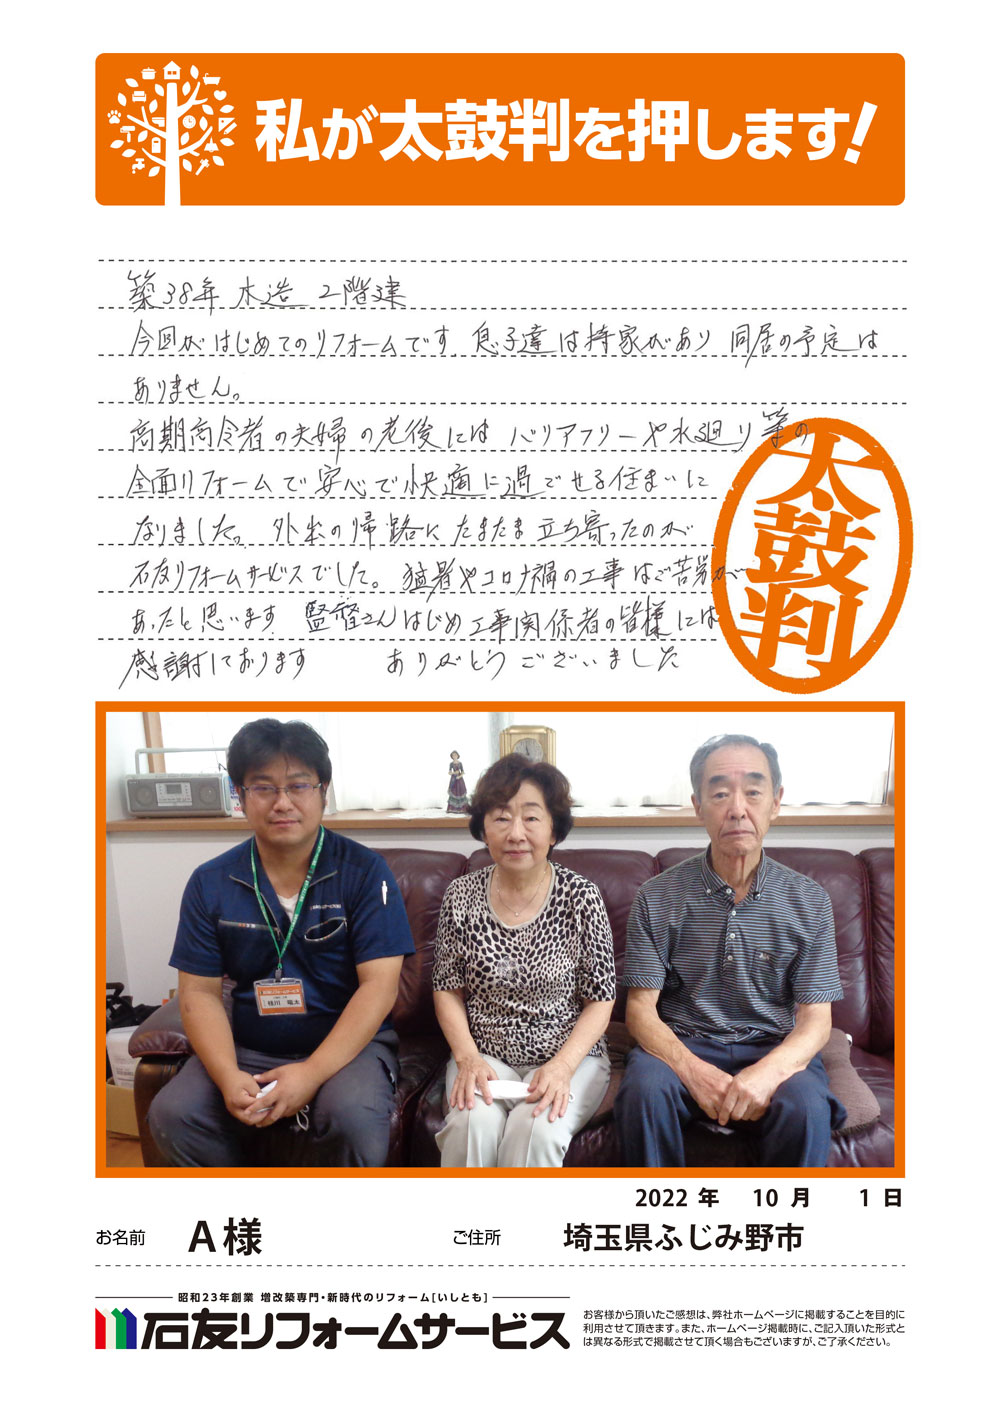 私が太鼓判を押します!
築38年 木造 2階建
今回がはじめてのリフォームです. 息子達は持家があり 同居の予定は
ありません。
高期高令者の夫婦の老後には バリアフリーや水廻り等の
全面リフォームで安心で快適に過ごせる住まいに
なりました。 外出の帰路にたまたま立ち寄ったのが
石友リフォームサービスでした。猛暑やコロナ禍の工事はご苦労が
あったと思います. 監督さんはじめ工事関係者の皆様には
感謝しております ありがとうございました
太鼓判
石友リフォームサービス
枝川 竜太
2022 年 10 月 1 日
お名前 A様 ご住所 埼玉県ふじみ野市
昭和23年創業 増改築専門・新時代のリフォーム[いしとも]
石友リフォームサービス
お客様から頂いたご感想は、弊社ホームページに掲載することを目的に
利用させて頂きます。また、ホームページ掲載時に、ご記入頂いた形式と
は異なる形式で掲載させて頂く場合もございますが、ご了承ください。